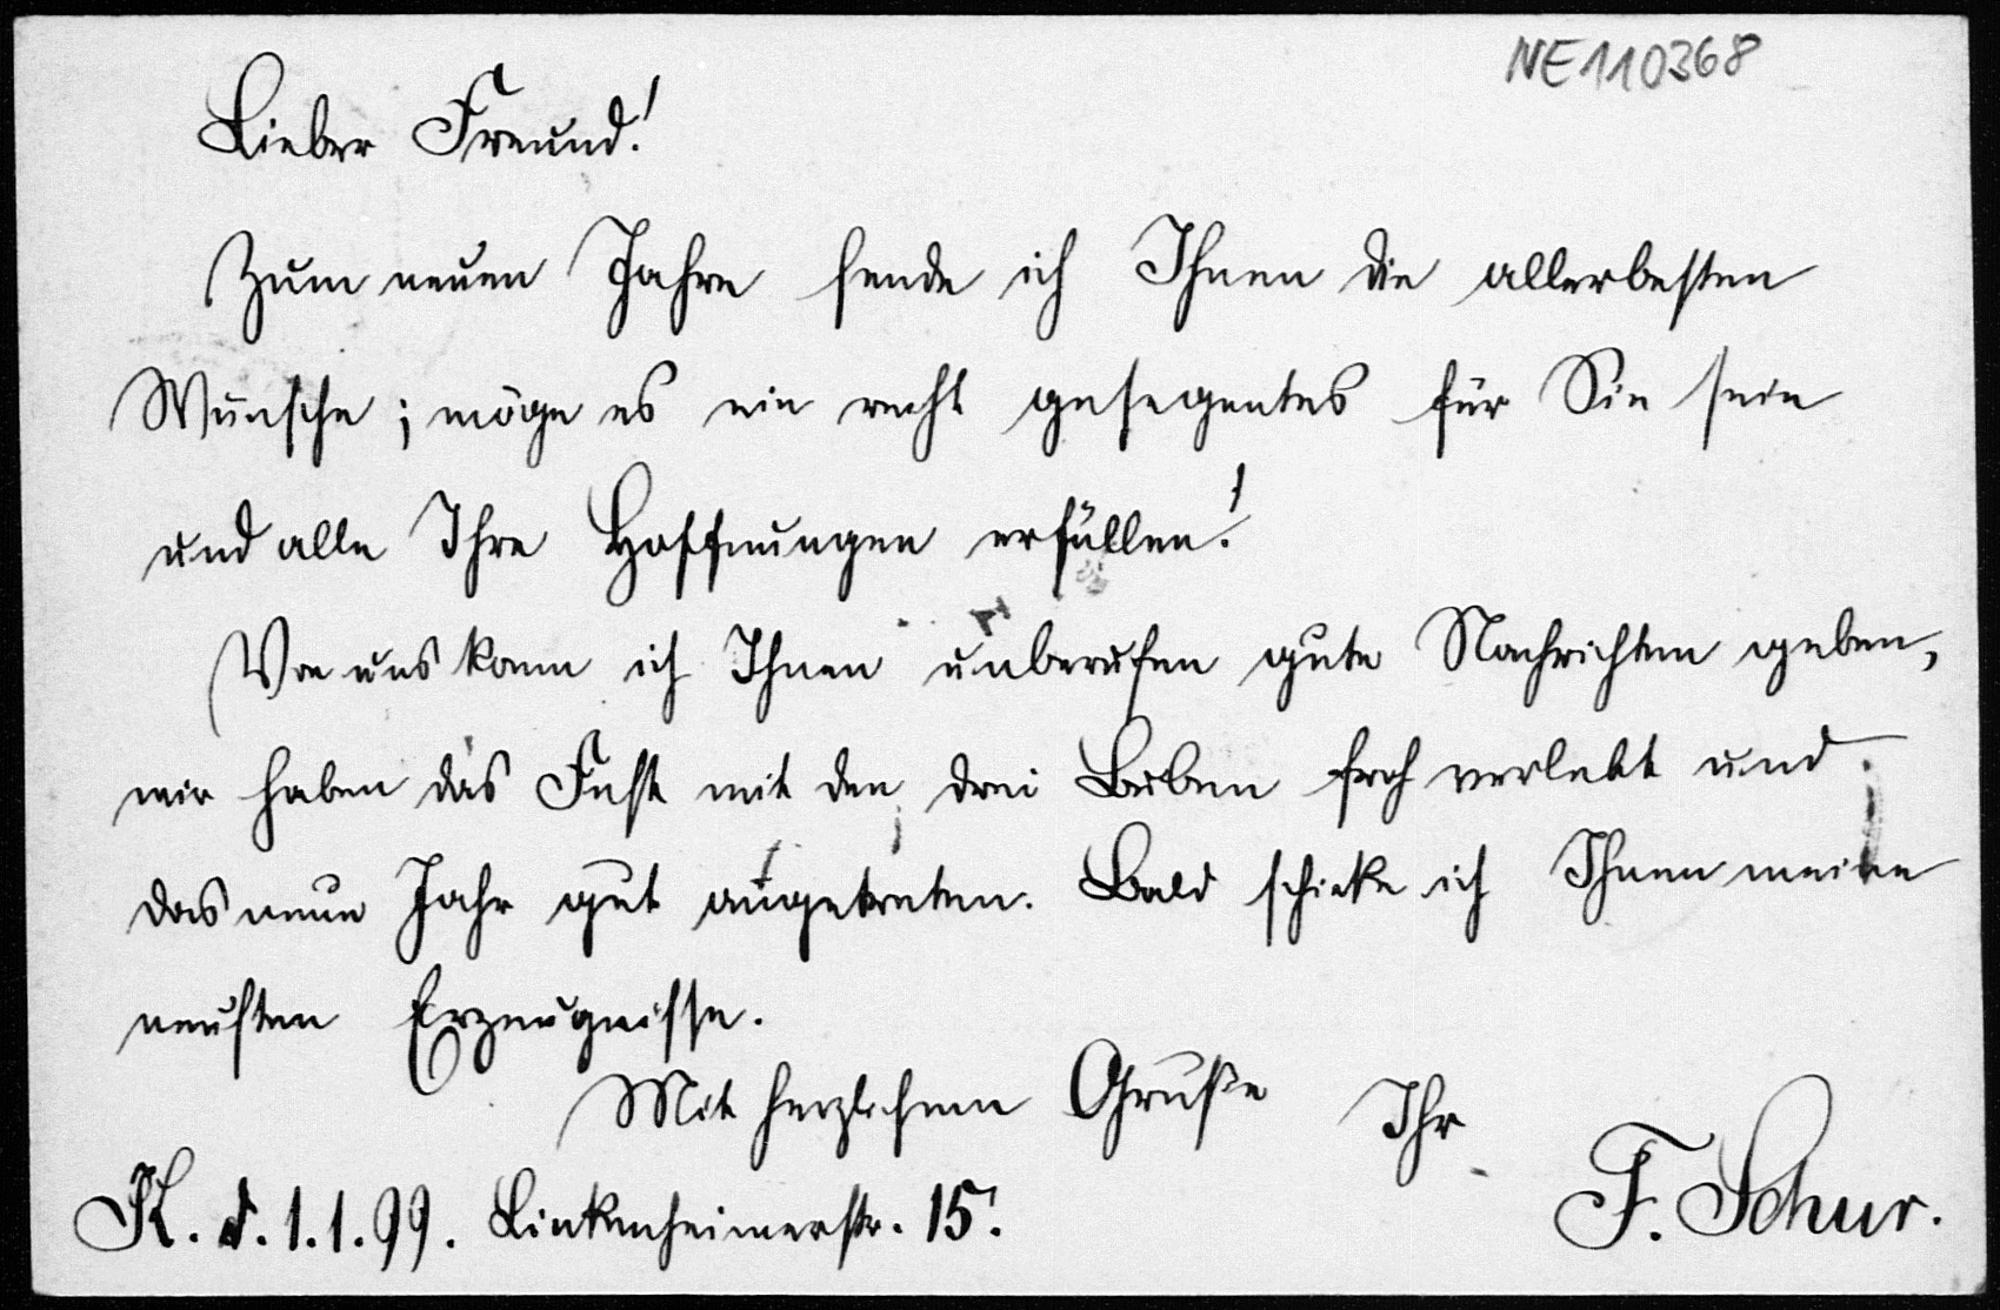 NE110368
Lieber Freund!
Zum neuen Jahre sende ich Ihnen die allerbesten
Wünsche; möge es ein recht gesegentes für Sie sein
und alle Ihre Hoffnungen erfüllen!
Von uns kann ich Ihnen unberufen gute Nachrichten geben,
wir haben das Fest mit den drei Buben froh verlebt und
das neue Jahr gut angetreten. Bald schicke ich Ihnen meine
neusten Erzeugnisse.
Mit herzlichem Gruße Ihr
F. Schur.
K. d. 1.1.99. Linkenheimerstr. 15.